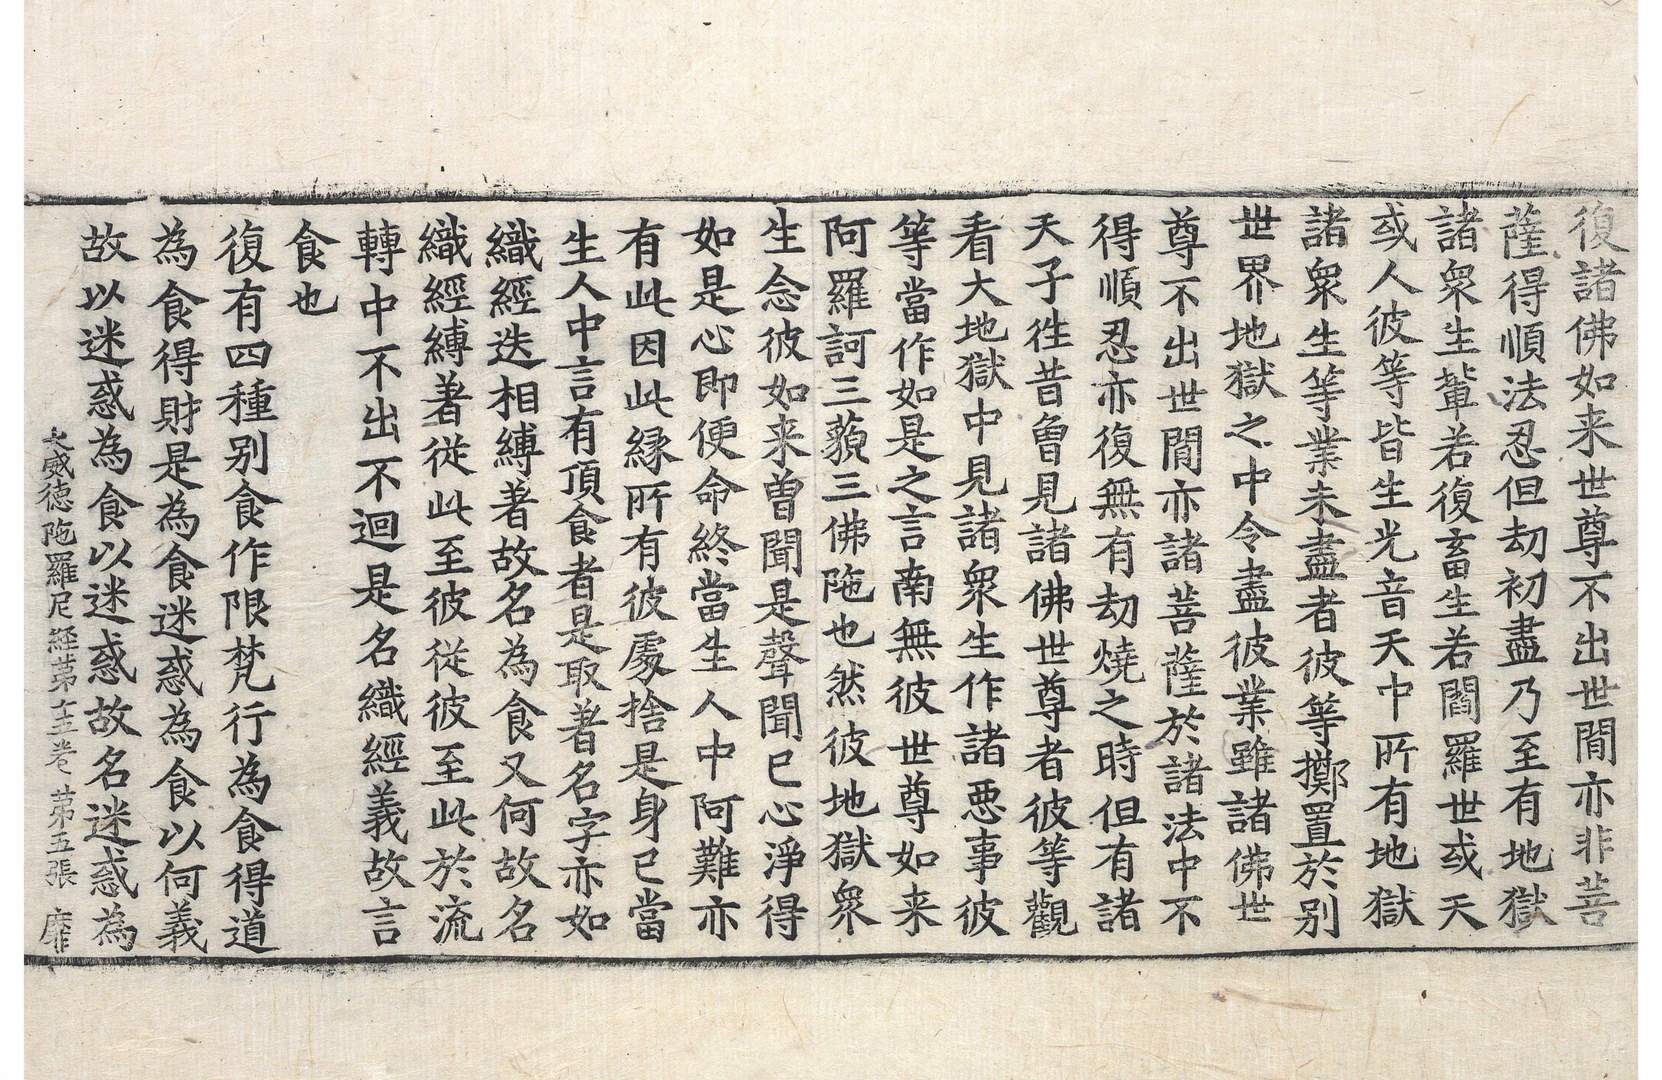 復諸佛如来世尊不出世閒亦非菩
薩得順法忍但劫初盡乃至有地獄
諸衆生軰若復畜生若閻羅世或天
或人彼等皆生光音天中所有地獄
諸衆生等業未盡者彼等擲置於別
世界地獄之中令盡彼業雖諸佛世
尊不出世閒亦諸菩薩於諸法中不
得順忍亦復無有劫燒之時但有諸
天子徃昔曾見諸佛世尊者彼等觀
看大地獄中見諸衆生作諸悪事彼
等當作如是之言南無彼世尊如来
阿羅訶三藐三佛陁也然彼地獄衆
生念彼如来曽聞是聲聞已心淨得
如是心即便命終當生人中阿難亦
有此因此縁所有彼處捨是身已當
生人中言有頂食者是取著名字亦如
織經迭相縛著故名為食又何故名
織經縛著従此至彼従彼至此於流
轉中不出不迴是名織經義故言
食也
復有四種別食作限梵行為食得道
為食得財是為食迷惑為食以何義
故以迷惑為食以迷惑故名迷惑為
大威德陁羅尼経苐十五卷 苐五張 靡